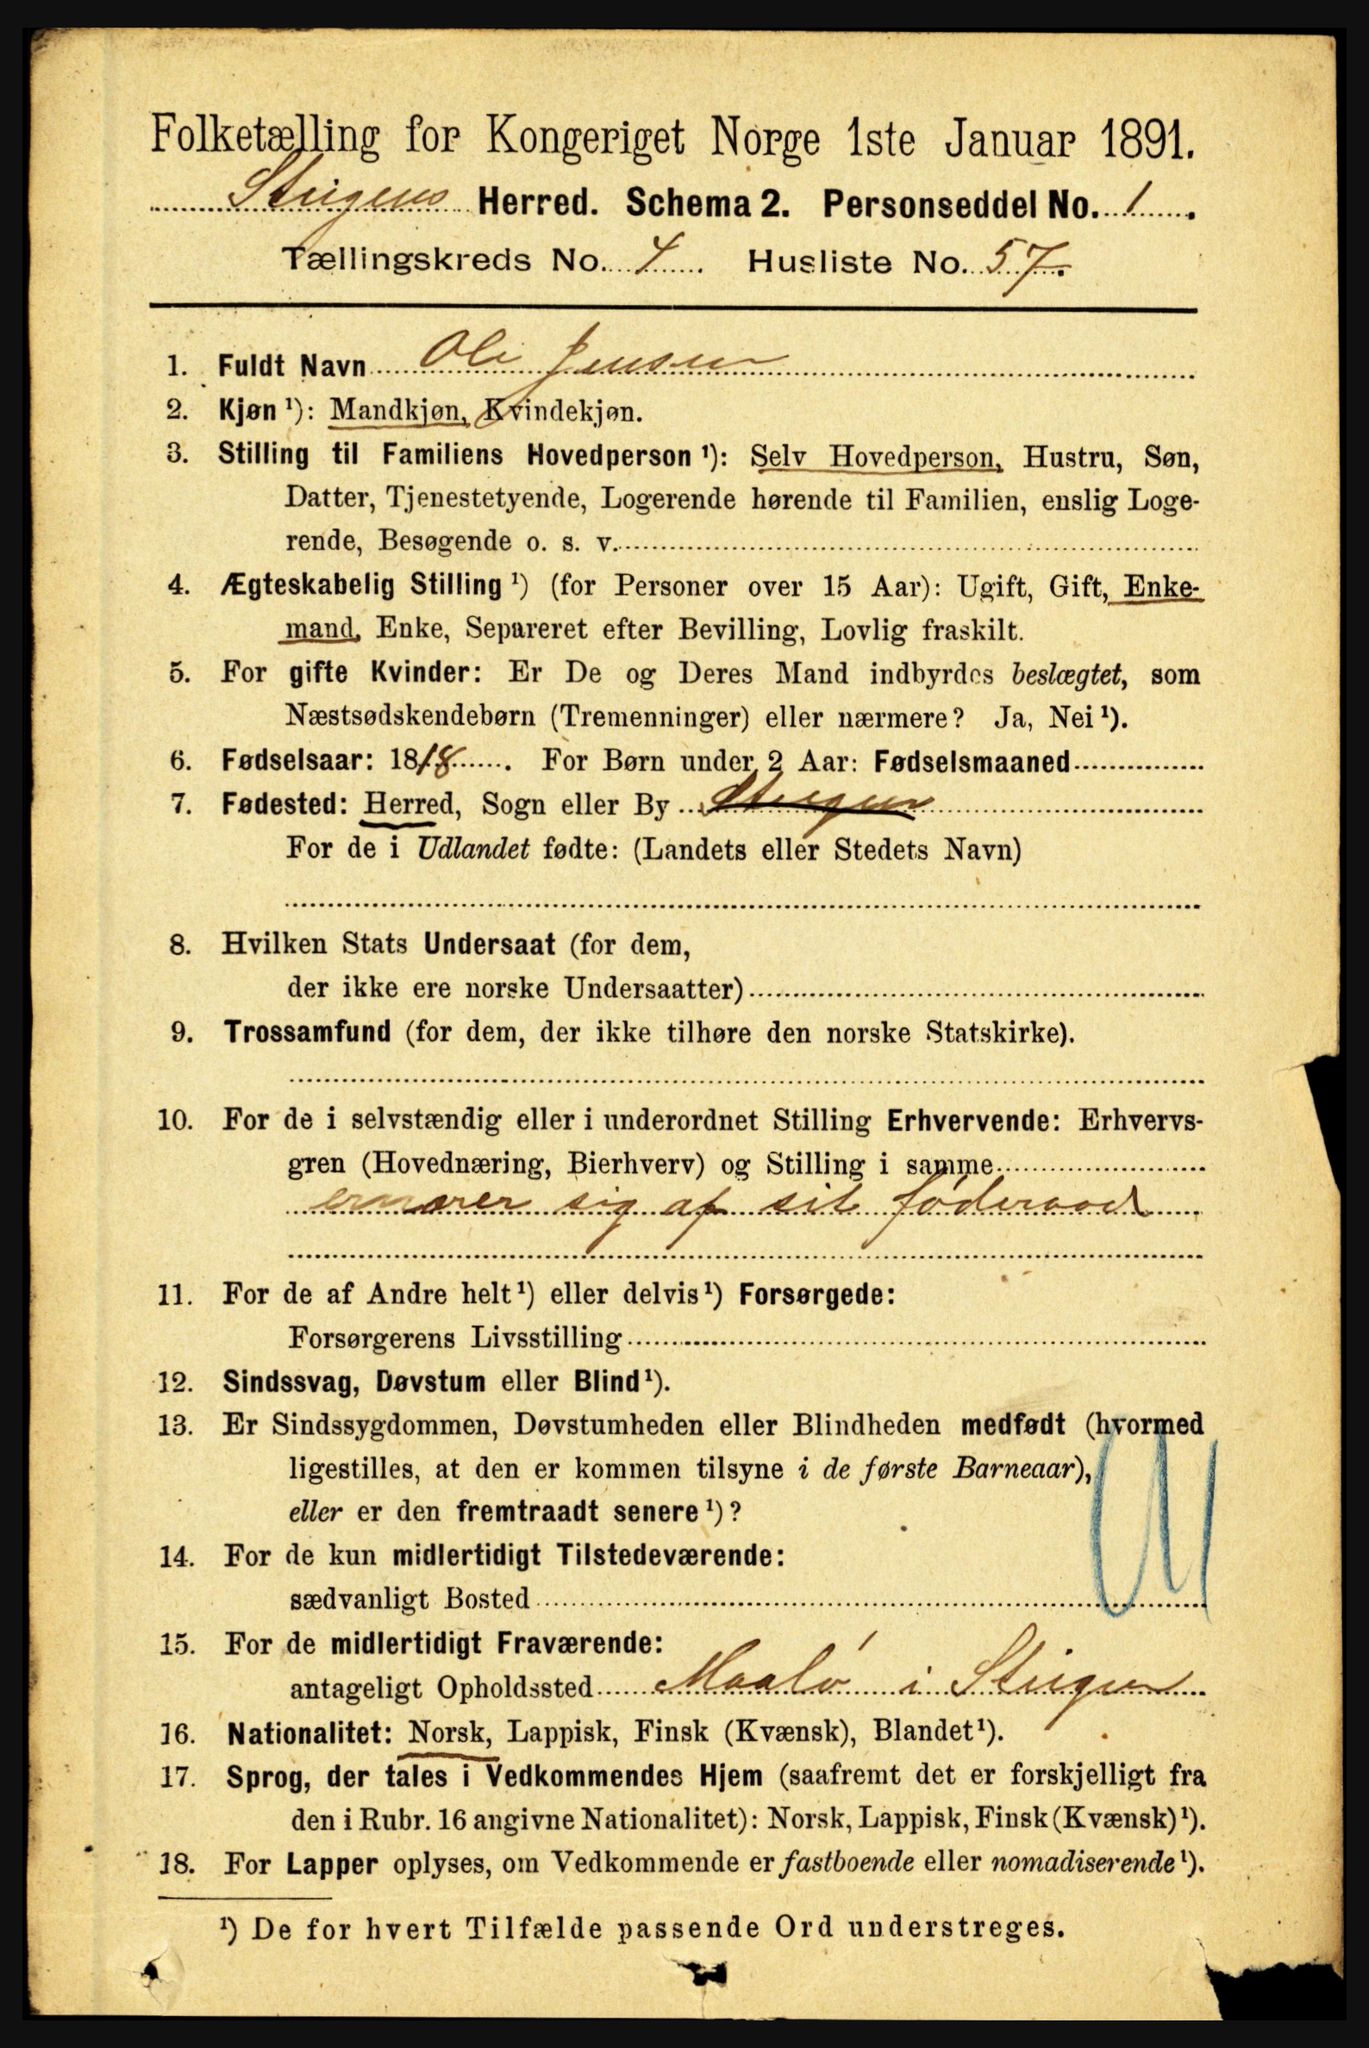 Folketælling for Kongeriget Norge 1ste Januar 1891.
Steigens Herred. Schema 2. Personseddel No. 1.
Tællingskreds No. 4. Husliste No. 57.
1. Fuldt Navn Ole Jensen
2. Kjøn ¹): Mandkjøn, Kvindekjøn.
3. Stilling til Familiens Hovedperson ¹): Selv Hovedperson, Hustru, Søn,
Datter, Tjenestetyende, Logerende hørende til Familien, enslig Loge-
rende, Besøgende o. s. v.
4. Ægteskabelig Stilling ¹) (for Personer over 15 Aar): Ugift, Gift, Enke-
mand, Enke, Separeret efter Bevilling, Lovlig fraskilt.
5. For gifte Kvinder: Er De og Deres Mand indbyrdes beslægtet, som
Næstsødskendebørn (Tremenninger) eller nærmere? Ja, Nei ¹).
6. Fødselsaar: 1818. For Børn under 2 Aar: Fødselsmaaned
7. Fødested: Herred, Sogn eller By Steigen
For de i Udlandet fødte: (Landets eller Stedets Navn)
8. Hvilken Stats Undersaat (for dem,
der ikke ere norske Undersaatter)
9. Trossamfund (for dem, der ikke tilhøre den norske Statskirke).
10. For de i selvstændig eller i underordnet Stilling Erhvervende: Erhvervs-
gren (Hovednæring, Bierhverv) og Stilling i samme
ernærer sig af sit føderaad
11. For de af Andre helt ¹) eller delvis ¹) Forsørgede:
Forsørgerens Livsstilling
12. Sindssvag, Døvstum eller Blind ¹).
13. Er Sindssygdommen, Døvstumheden eller Blindheden medfødt (hvormed
ligestilles, at den er kommen tilsyne i de første Barneaar),
eller er den fremtraadt senere ¹)?
14. For de kun midlertidigt Tilstedeværende:
sædvanligt Bosted
15. For de midlertidigt Fraværende:
antageligt Opholdssted Maalø i Steigen
16. Nationalitet: Norsk, Lappisk, Finsk (Kvænsk), Blandet ¹).
17. Sprog, der tales i Vedkommendes Hjem (saafremt det er forskjelligt fra
den i Rubr. 16 angivne Nationalitet): Norsk, Lappisk, Finsk (Kvænsk) ¹).
18. For Lapper oplyses, om Vedkommende er fastboende eller nomadiserende ¹).
¹) De for hvert Tilfælde passende Ord understreges.